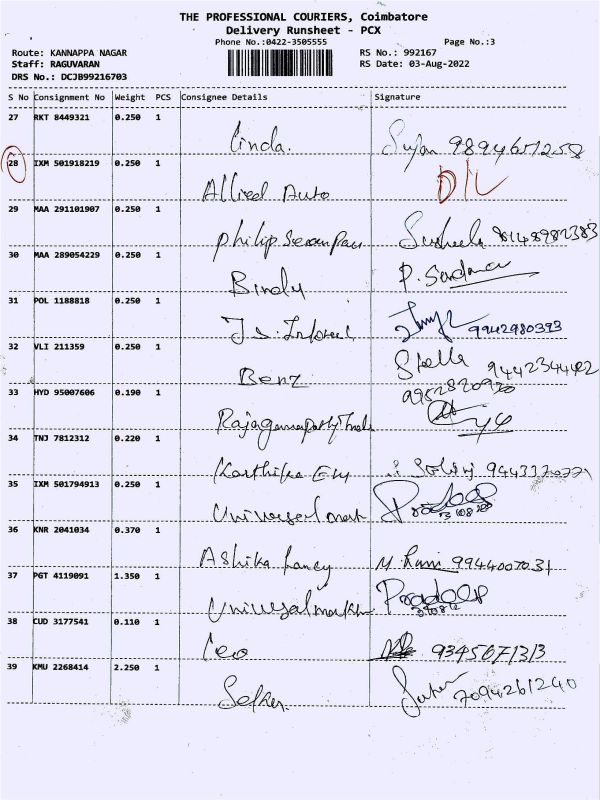 THE PROFESSIONAL COURIERS, Coimbatore
Delivery Runsheet - PCX
Phone No.:0422-3505555 Page No.:3
Route: KANNAPPA NAGAR RS No.: 992167
Staff: RAGUVARAN RS Date: 03-Aug-2022
DRS No.: DCJB99216703
S No Consignment No Weight PCS Consignee Details Signature
27 RKT 8449321 0.250 1
Linda.
28 IXM 501918219 0.250 1
Allied Auto D/L
29 MAA 291101907 0.250 1
Philip Susheela
30 MAA 289054229 0.250 1
Bindu P.
31 POL 1188818 0.250 1
9942980393
32 VLI 211359 0.250 1
Benz Stella
33 HYD 95007606 0.190 1
34 TNJ 7812312 0.220 1
Karthika
35 IXM 501794913 0.250 1
Universal Pradeep
36 KNR 2041034 0.370 1
Ashika fancy M. Rani 9944007031
37 PGT 4119091 1.350 1
Pradeep
38 CUD 3177541 0.110 1
Leo 9345671313
39 KMU 2268414 2.250 1
7094261240